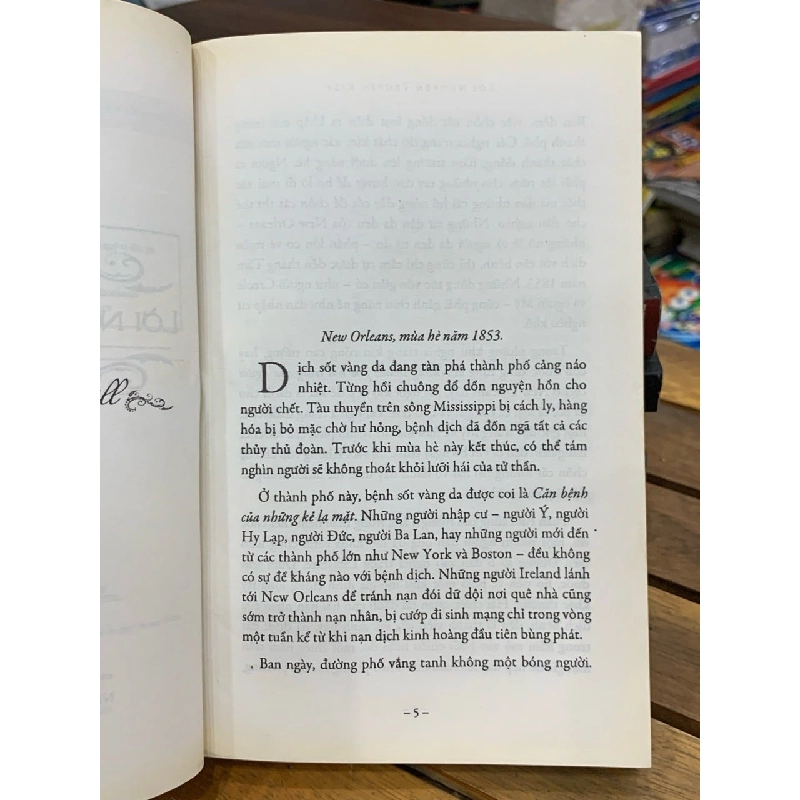 LỜI N
ll
New Orleans, mùa hè năm 1853.
Dịch sốt vàng da đang tàn phá thành phố cảng náo
nhiệt. Từng hồi chuông đổ dồn nguyện hồn cho
người chết. Tàu thuyền trên sông Mississippi bị cách ly, hàng
hóa bị bỏ mặc chờ hư hỏng, bệnh dịch đã đốn ngã tất cả các
thủy thủ đoàn. Trước khi mùa hè này kết thúc, có thể tám
nghìn người sẽ không thoát khỏi lưỡi hái của tử thần.
Ở thành phố này, bệnh sốt vàng da được coi là Căn bệnh
của những kẻ lạ mặt. Những người nhập cư – người Ý, người
Hy Lạp, người Đức, người Ba Lan, hay những người mới đến
từ các thành phố lớn như New York và Boston – đều không
có sự đề kháng nào với bệnh dịch. Những người Ireland lánh
tới New Orleans để tránh nạn đói dữ dội nơi quê nhà cũng
sớm trở thành nạn nhân, bị cướp đi sinh mạng chỉ trong vòng
một tuần kể từ khi nạn dịch kinh hoàng đầu tiên bùng phát.
Ban ngày, đường phố vắng tanh không một bóng người.
– 5 –